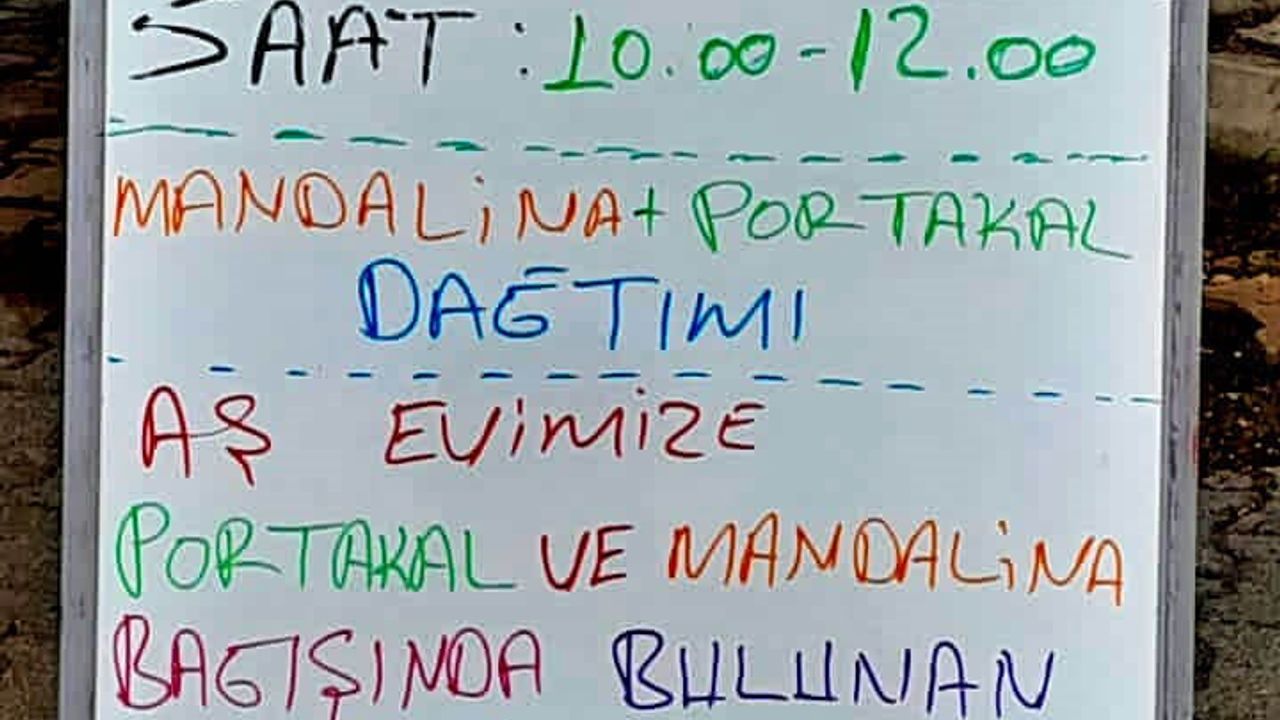 SAAT : 10.00 - 12.00
MANDALİNA + PORTAKAL
DAĞTIMI
AŞ EVİMİZE
PORTAKAL VE MANDALİNA
BAGIŞINDA BULUNAN